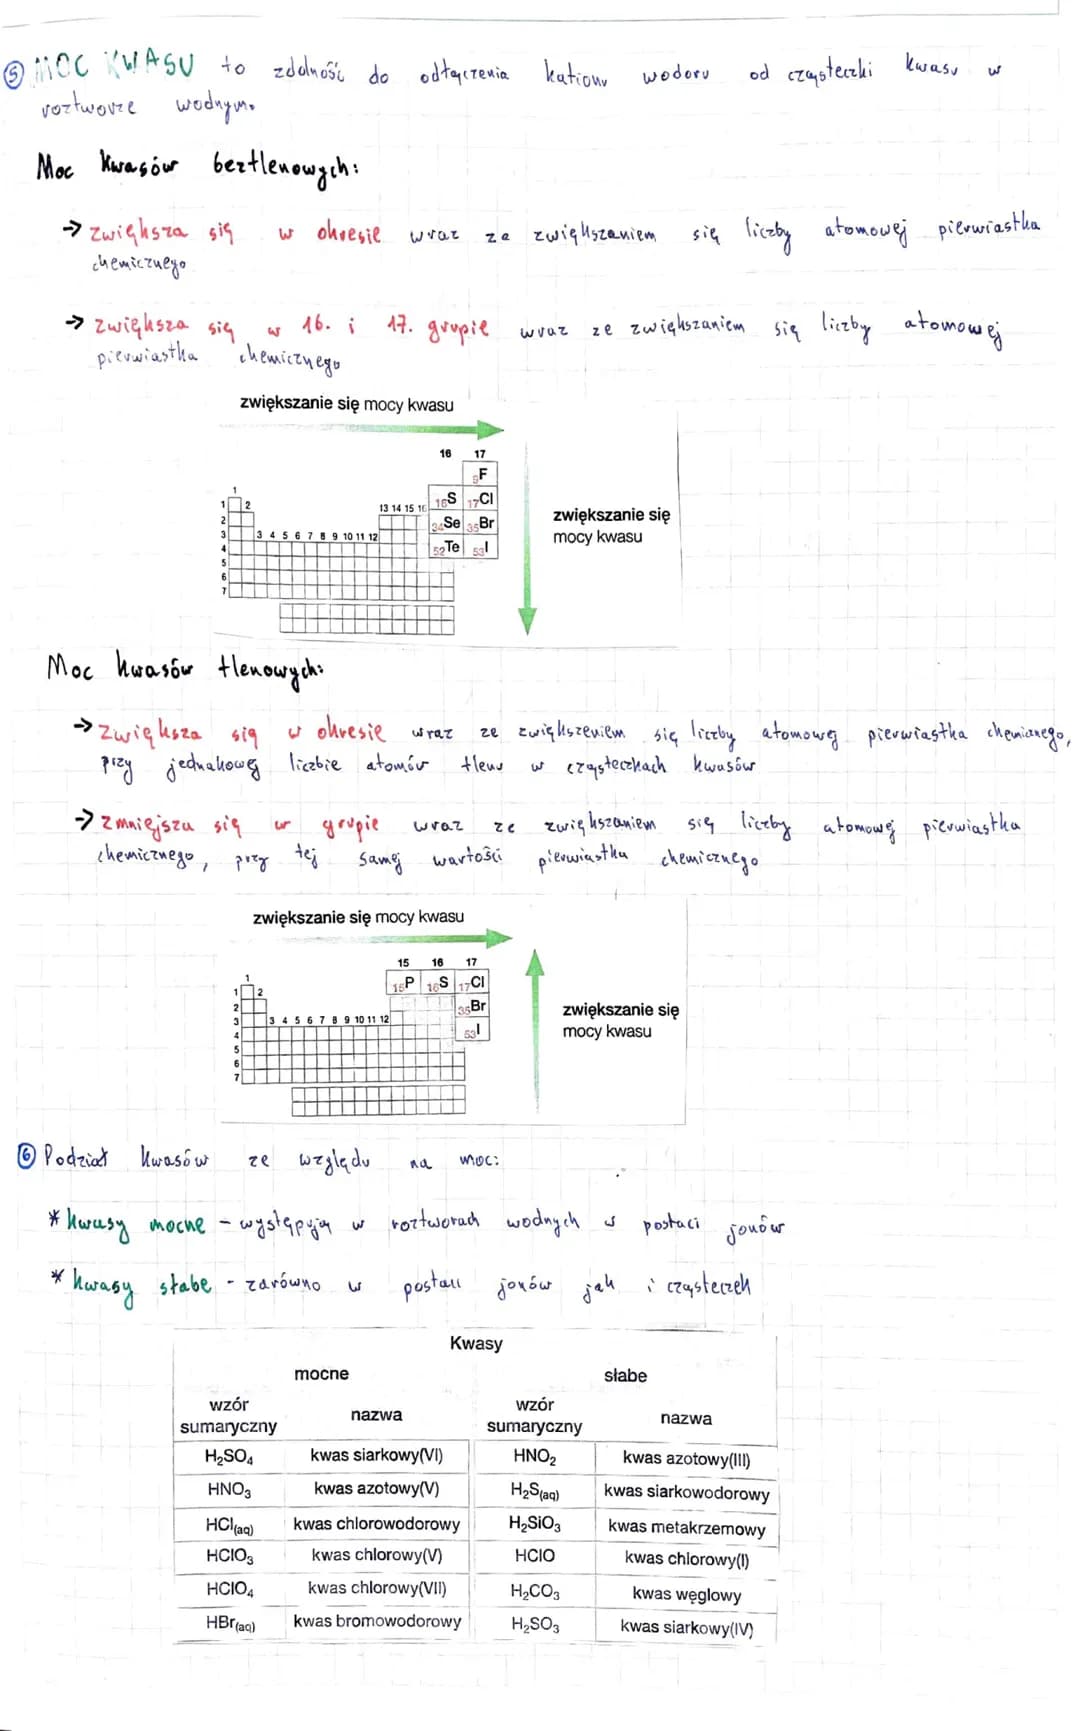 ⑤ MOC KWASU to zdolność do odłączenia kationu wodoru od cząsteczki kwasu w
roztworze wodnym.
Moc kwasów beztlenowych:
→ zwiększa się w okresie wraz ze zwiększaniem się liczby atomowej pierwiastka
chemicznego
→ zwiększa się w 16. i 17. grupie wraz ze zwiększaniem się liczby atomowej
pierwiastka chemicznego
zwiększanie się mocy kwasu
16 17
9F
1
1 2 13 14 15 16 16S 17Cl
2 34Se 35Br
3 3 4 5 6 7 8 9 10 11 12
4 52Te 53I
5
6
7
zwiększanie się
mocy kwasu
Moc kwasów tlenowych:
→ zwiększa się w okresie wraz ze zwiększeniem się liczby atomowej pierwiastka chemicznego,
przy jednakowej liczbie atomów tlenu w cząsteczkach kwasów
→ zmniejsza się w grupie wraz ze zwiększaniem się liczby atomowej pierwiastka
chemicznego, przy tej samej wartości pierwiastka chemicznego
zwiększanie się mocy kwasu
15 16 17
1 15P 16S 17Cl
1 2
2 35Br
3 3 4 5 6 7 8 9 10 11 12
4 53I
5
6
7
zwiększanie się
mocy kwasu
⑥ Podział kwasów ze względu na moc:
* kwasy mocne - występują w roztworach wodnych w postaci jonów
* kwasy słabe - zarówno w postaci jonów jak i cząsteczek
Kwasy
mocne słabe
wzór sumaryczny nazwa wzór sumaryczny nazwa
H₂SO₄ kwas siarkowy(VI) HNO₂ kwas azotowy(III)
HNO₃ kwas azotowy(V) H₂S(aq) kwas siarkowodorowy
HCl(aq) kwas chlorowodorowy H₂SiO₃ kwas metakrzemowy
HClO₃ kwas chlorowy(V) HClO kwas chlorowy(I)
HClO₄ kwas chlorowy(VII) H₂CO₃ kwas węglowy
HBr(aq) kwas bromowodorowy H₂SO₃ kwas siarkowy(IV)